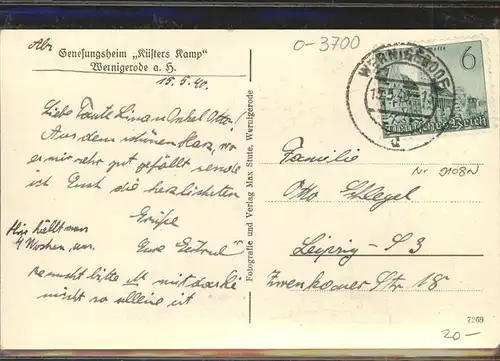 Abs
Genesungsheim „Küsters Kamp"
Wernigerode a. H.
15.5.40.
Liebe Tante Lina u. Onkel Otto!
Aus dem schönen Harz, wo
es mir sehr gut gefällt sende
ich Euch die herzlichsten
Grüße
Eure Gertrud
Hier hält man
4 Wochen aus.
bitte mit
nicht so alleine ist
Fotografie und Verlag Max Stute, Wernigerode
0-3700
WERNIGERODE
6
Deutsches Reich
Nr 9108N
Familie
Otto Schlegel
Leipzig - S 3
Zwenkauer Str 18
7269
20.-